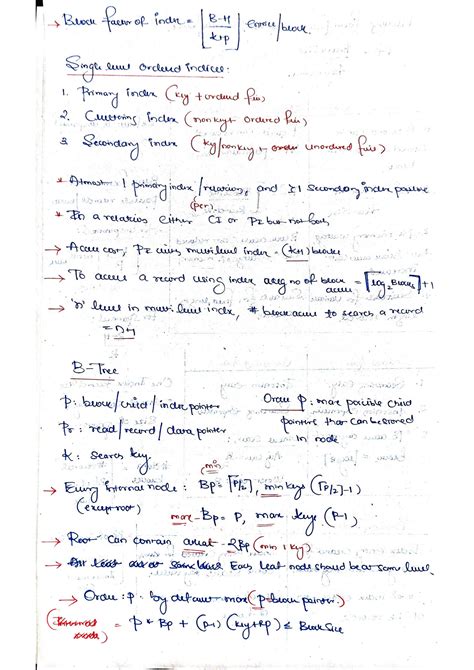 → Block factor of index = ⌊B-H / K+P⌋ entries/block.
Single level ordered indices:
1. Primary index (key + ordered file)
2. Clustering index (nonkey + ordered file)
3 Secondary index (key/nonkey + unordered file)
* Atmost 1 primary index/relation, and ≥1 Secondary index possible
(per)
* In a relation either CI or PI but not both
→ Access cost, PI using multilevel index = (k+1) blocks
→ To access a record using index avg no of block access = ⌈log₂Blocks⌉+1
→ 'n' level in multilevel index, # block access to search a record
= n+1
B-Tree
P: block/child/index pointer
Order P: max possible child
pointers that can be stored
in node
Pr: read/record/data pointer
K: Search key.
(min)
→ Every Internal node: Bp = ⌈P/2⌉, min keys (⌈P/2⌉-1)
(except root)
max - Bp = P, max keys (P-1)
→ Root can contain atleast 2Bp (min 1 key)
→ Each leaf node should be at same level.
→ Order: P: by default max (P-block pointer)
= P * Bp + (P-1) (key+Rp) ≤ Block Size